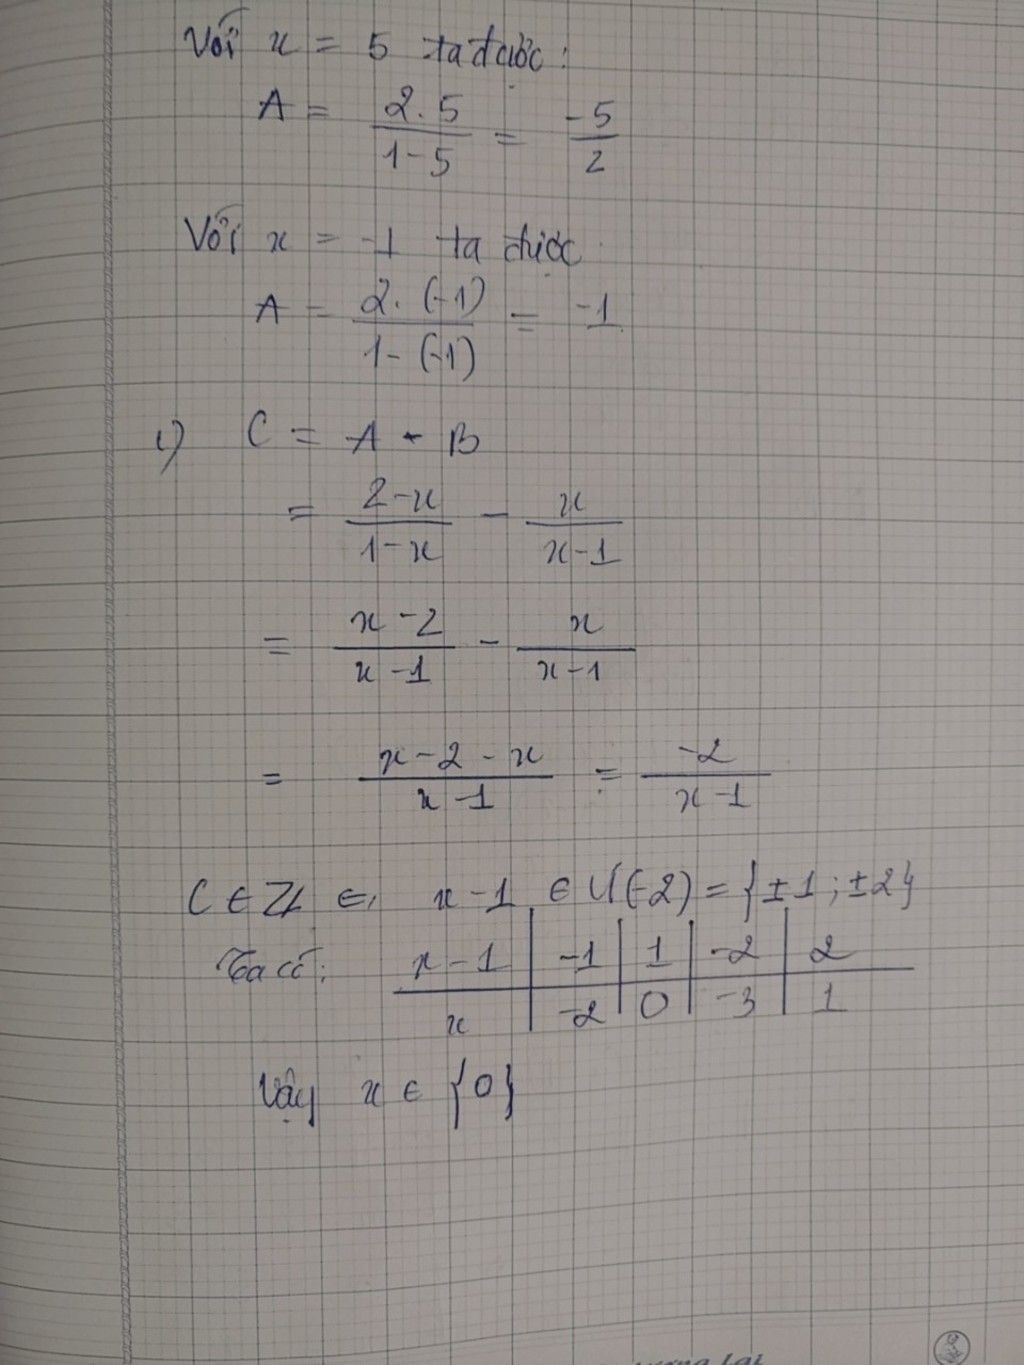 Với x = 5 ta được:
A = 2.5 / 1-5 = -5 / 2
Với x = -1 ta được
A = 2.(-1) / 1-(-1) = -1
C = A - B
= 2-x / 1-x - x / x-1
= x-2 / x-1 - x / x-1
= x-2-x / x-1 = -2 / x-1
C ∈ Z x-1 ∈ Ư(-2) = {±1; ±2}
Ta có: x-1 | -1 | 1 | -2 | 2
x | -2 | 0 | -3 | 1
Vậy x ∈ {0}